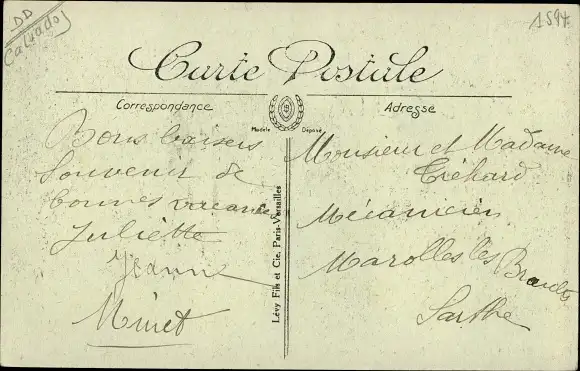 DD
Calvado
159t
Carte Postale
Correspondance
Adresse
Modèle Déposé
Bons baisers
Souvenir de
bonnes vacances
Juliette
Jeanne
Minet
Monsieur et Madame
Tréhard
Mécanicien
Marolles les Braults
Sarthe
Lévy Fils et Cie, Paris-Versailles